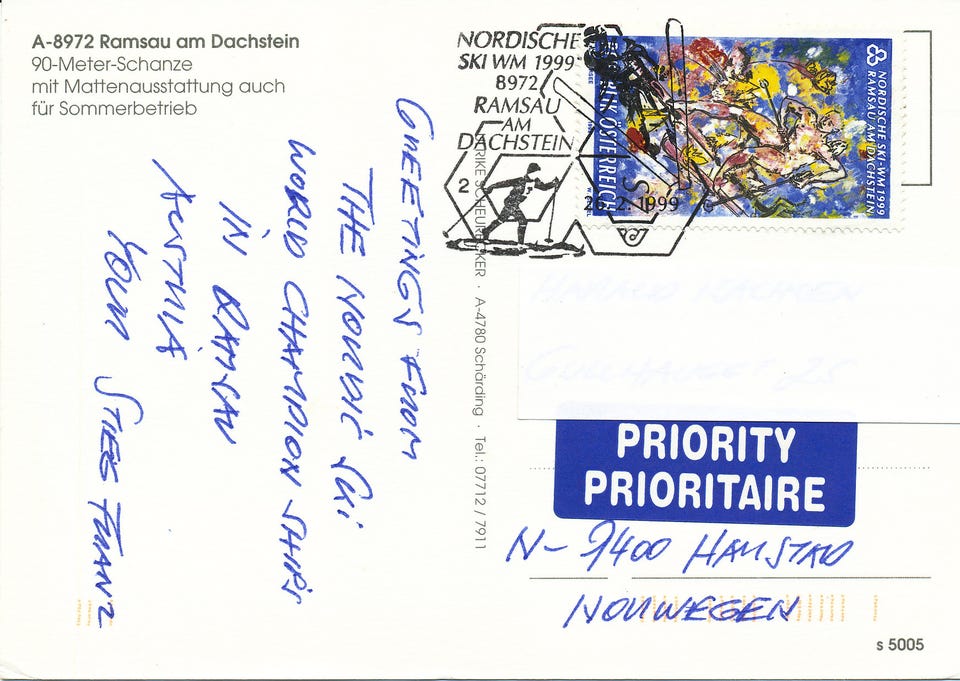 A-8972 Ramsau am Dachstein
90-Meter-Schanze
mit Mattenausstattung auch
für Sommerbetrieb
NORDISCHE
SKI WM 1999
8972
RAMSAU
AM
DACHSTEIN
2
26.2.1999
ÖSTERREICH
NORDISCHE SKI-WM 1999
RAMSAU AM DACHSTEIN
GREETINGS FROM
THE NORDIC SKI
WORLD CHAMPION SHIPS
IN RAMSAU
AUSTRIA
YOUR STIES FRANZ
A-4780 Schärding · Tel.: 07712 / 7911
PRIORITY
PRIORITAIRE
N-9400 HARSTAD
NORWEGEN
s 5005